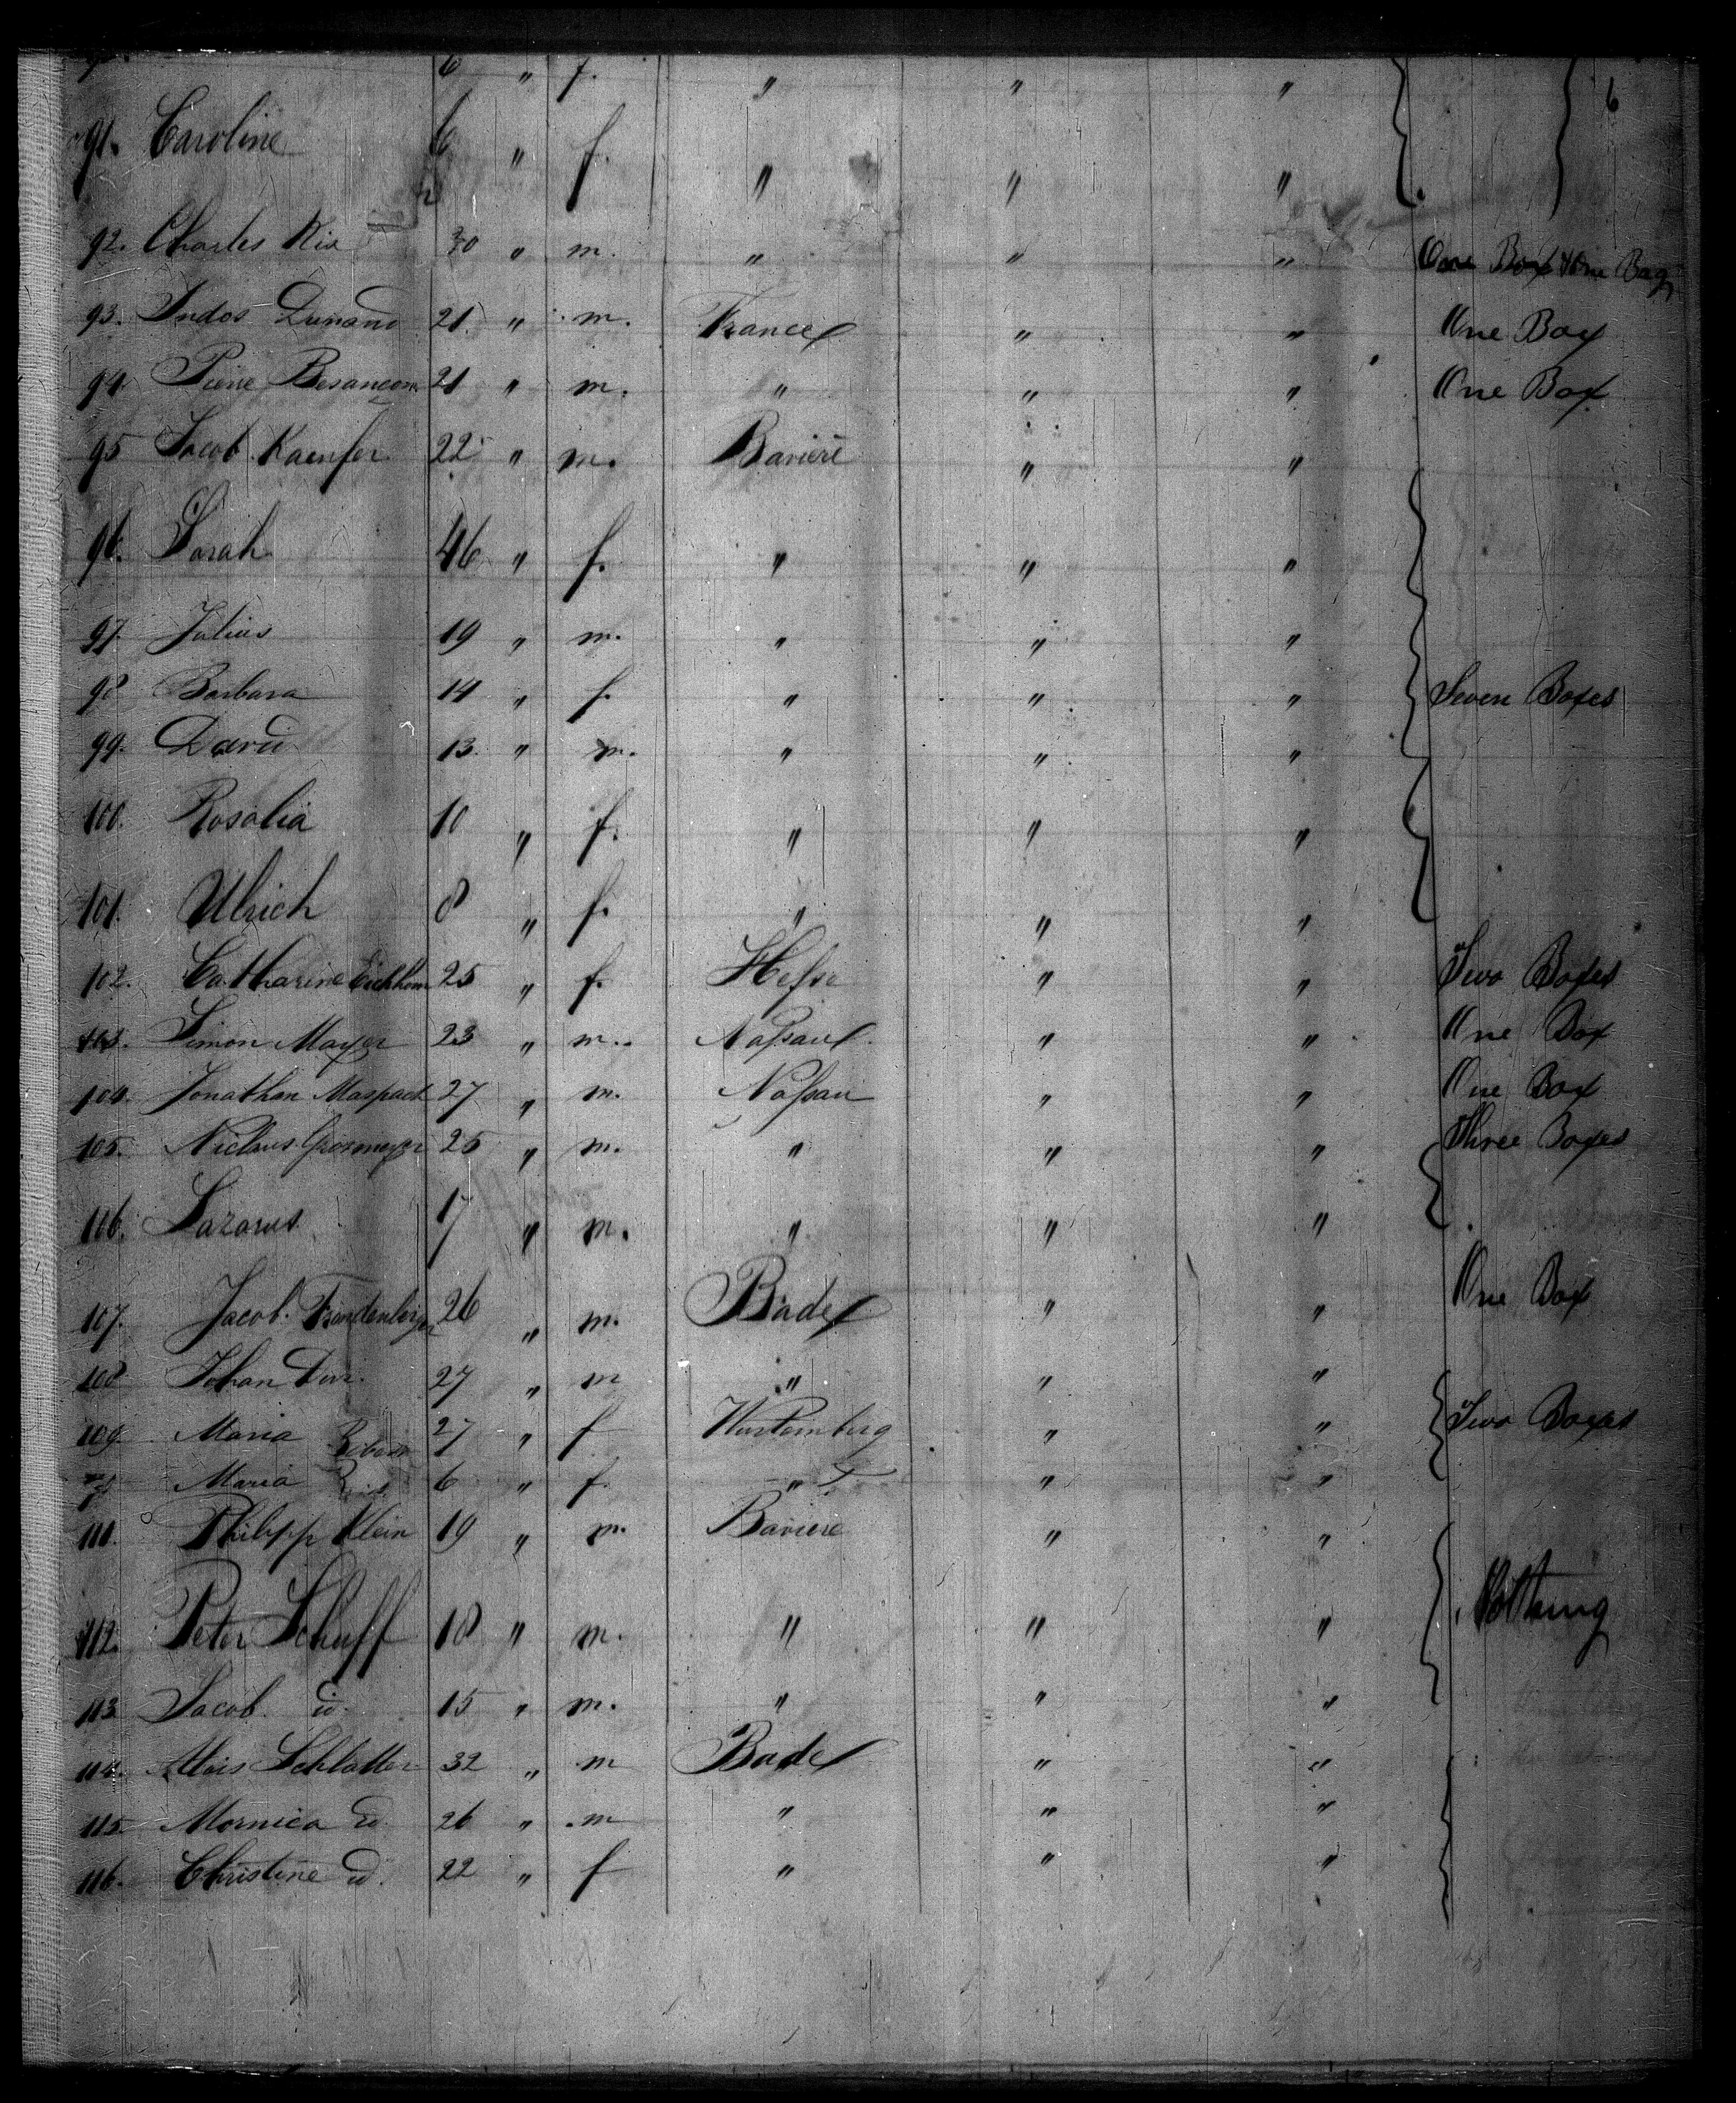 6 " f. " " " 6
91. Caroline 6 " f. " " "
92. Charles Rix " m. " " " One Box & One Bag
93. Dunand 21 " m. France " " One Box
94 Pierre Besançon 21 " m. " " " One Box
95 Jacob Kaenfer 22 " m. Baviere " "
96. Sarah 46 " f. " " "
97. Julius 19 " m. " " "
98 Barbara 14 " f. " " " Seven Boxes
99. David 13. " m. " " "
100. Rosalia 10 " f. " " "
101. Ulrich 8 " f. " " "
102. Catharine Eichhorn 25 " f. Hesse " " Two Boxes
103. Simon Mayer 23 " m. Nassau " " One Box
104. Jonathan Maspach 27 " m. Nassau " " One Box
105. Niclaus Grosmayer 25 " m. " " " Three Boxes
106. Lazarus 17 " m. " " "
107. Jacob 26 " m. Bade " " One Box
108 Johan Durr. 27 " m " " "
109. Maria 27 " f Wurtemberg " " Two Boxes
Maria 6 " f. " " "
111. Philipp Klein 19 " m. Baviere " "
112. Peter Schuff 18 " m. " " " Nothing
113 Jacob id. 15 " m. " " "
114. Alois Schlatter 32 " m Bade " "
115. Mornica id. 26 " m " " "
116. Christine id. 22 " f " " "